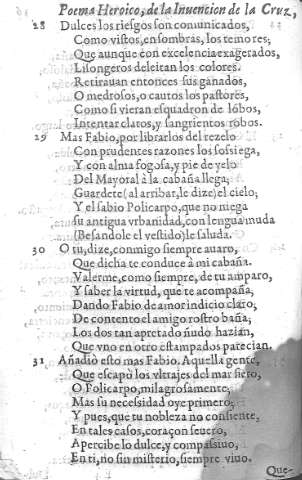 Poema Heroico, de la Inuencion de la Cruz,
28 Dulces los riesgos son comunicados,
Como vistos, en sombras, los temores;
Que aunque con excelencia exagerados,
Lisongeros deleitan los colores.
Retirauan entonces sus ganados,
O medrosos, o cautos los pastores,
Como si vieran esquadron de lobos,
Intentar clatos, y sangrientos robos.
29 Mas Fabio, por librarlos del rezelo
Con prudentes razones los sossiega,
Y con alma fogosa, y pie de yelo
Del Mayoral à la cabaña llega,
Guardete (al arribar, le dize) el cielo;
Y el sabio Policarpo, que no niega
su antigua vrbanidad, con lengua muda
(Besandole el vestido) le saluda.
30 O tu, dize, conmigo siempre auaro,
Que dicha te conduce à mi cabaña.
Valerme, como siempre, de tu amparo,
Y saber la virtud, que te acompaña;
Dando Fabio de amor indicio claro;
De contento el amigo rostro baña;
Los dos tan apretado ñudo hazian,
Que vno en otro estampados parecian.
31 Añadiò esto mas Fabio. Aquella gente,
Que escapò los vltrajes del mar fiero,
O Policarpo, milagrosamente,
Mas su necessidad oye primero;
Y pues, que tu nobleza no consiente,
En tales casos, coraçon seuero,
Apercibe lo dulce, y compassiuo,
En ti, no sin misterio, siempre viuo.
Que-